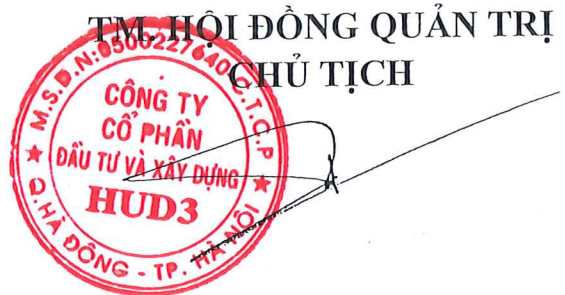 TM. HỘI ĐỒNG QUẢN TRỊ
CHỦ TỊCH
M.S.D.N:0500227640-C.T.C.P
CÔNG TY
CỔ PHẦN
ĐẦU TƯ VÀ XÂY DỰNG
HUD3
Q.HÀ ĐÔNG - TP. HÀ NỘI